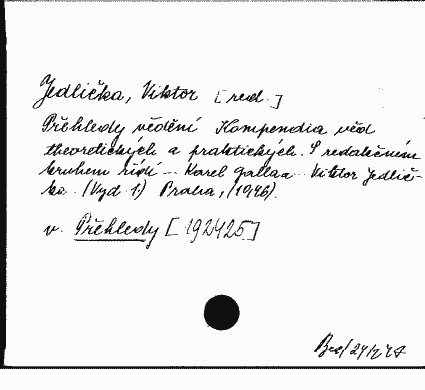 Jedlička, Viktor [red.]
Přehledy vědění Kompendia věd
theoretických a praktických. S redakčním
kruhem řídí -- Karel Gallaa -- Viktor Jedlič-
ka. (Vyd. 1) Praha, (1946).
v. Přehledy [192425]